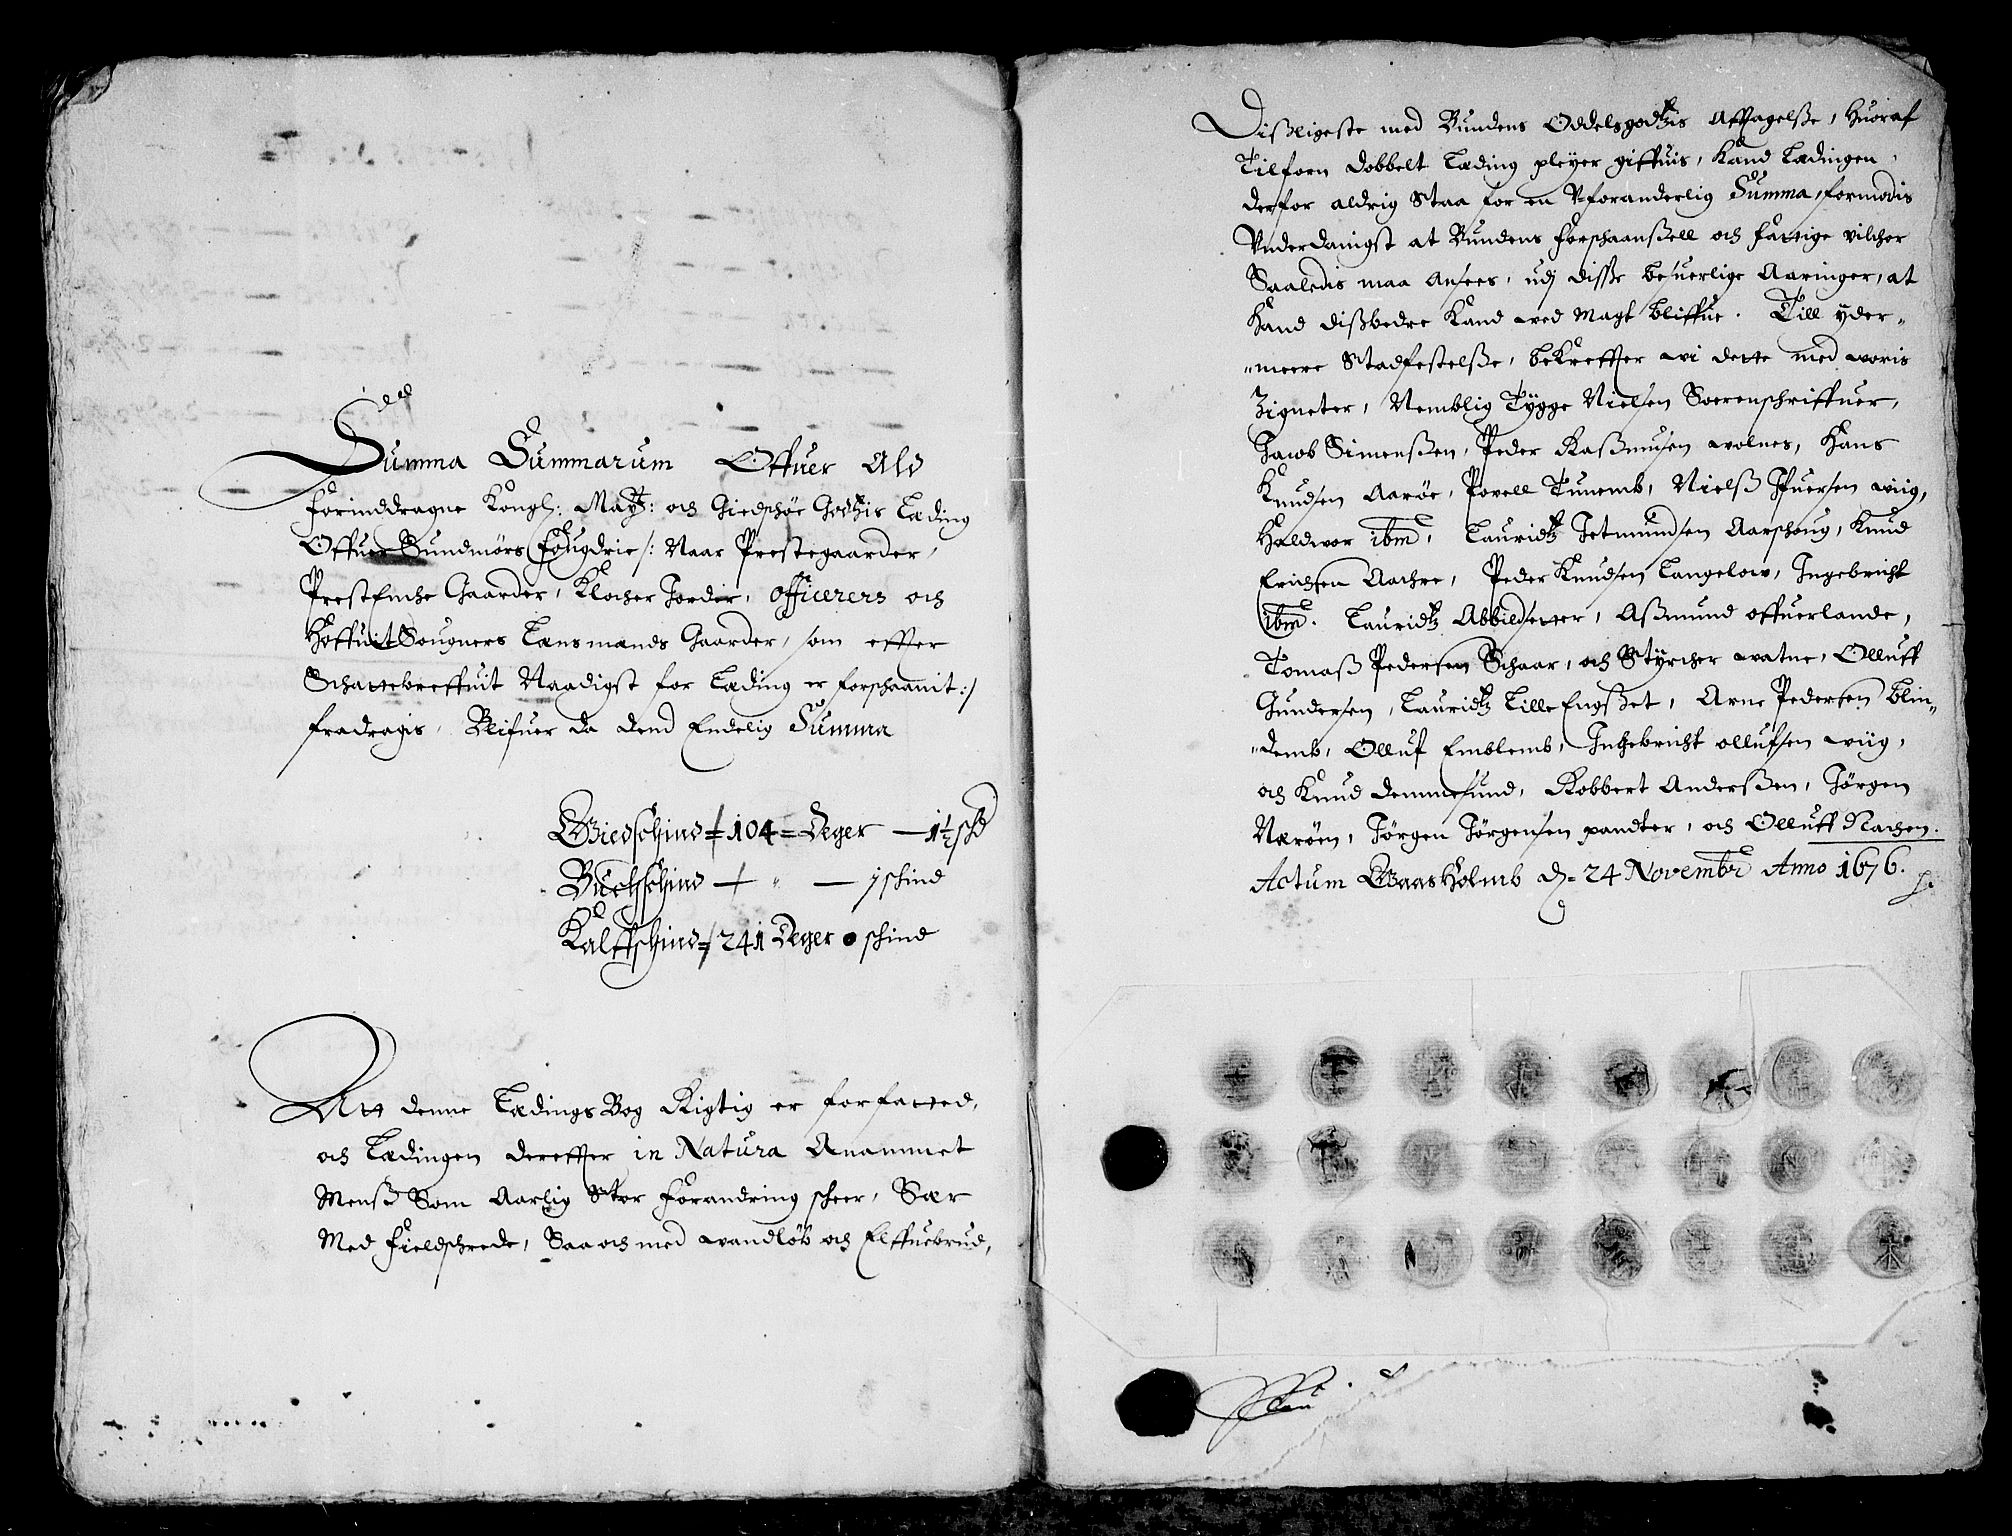 Summa Summarum Offuer Ald
forinddragne Kongl: Maytz: och Giedshøe Godtzis Læding
Offuer Sundmørs Fougdrie /: Naar Prestegaarder,
Prestenche Gaarder, Klocher Jorder, officerers och
Hoffuit Sougners Lænsmænds Gaarder, som effter
Schattebreffuit Naadigst for Læding er forschaanit :/
fradragis, Blifuer da dend Endelig Summa
Giedschind = 104 = Deger — 1½ schd
Buchschind — " — 1 schind
Kalffschind = 241 Deger 0 schind
Att denne Lædings Bog Rigtig er forfatted,
och Lædingen dereffter in Natura Anammet
Menß Som Aarlig Stor forandring scheer, Sær
Med fieldschrede, Saa och med wandløb och Elffuebrud,
Dißligeste med Bundens Oddelsgodtzis Afftagelße, Huoraf
Tilforn dobbelt Læding pleyer giffuis, Kand Lædingen
derfor aldrig Staa for en Vforanderlig Summa, formodis
Vnderdanigst at Bundens forschaanßell och fattige vilchor
Saaledis maa Ansees, udj disße besuerlige Aaringer, at
Hand dißbedre Kand wed Magt bliffue. Till yder-
-meere Stadfestelße, bekreffter wi dette med woris
Zigneter, Nemblig Tygge Nielsen Sorenschriffuer,
Jacob Simenßen, Peder Raßmusen wolnes, Hans
Knudsen Aarøe, Povell Tunemb, Nielß Ifuersen wiig,
Haldwor ibm, Lauridtz Jetmundsen Aarschoug, Knud
Erichsen Aachre, Peder Knudsen Langelow, Ingebricht
ibm. Lauridtz Abbildsetter, Aßmund offuerlande,
Tomaß Pedersen Schaar, och Styrcher watne, Olluff
Gundersen, Lauridtz Lille Engßet, Arne Pedersen blin-
-demb, Olluf Emblemb, Ingebricht ollufsen wiig,
och Knud demmesund, Robbert Anderßen, Jørgen
Nærøen, Jørgen Jørgensen pandter, och Olluff Nachen.
Actum Waasholmb d= 24 Novembr Anno 1676.